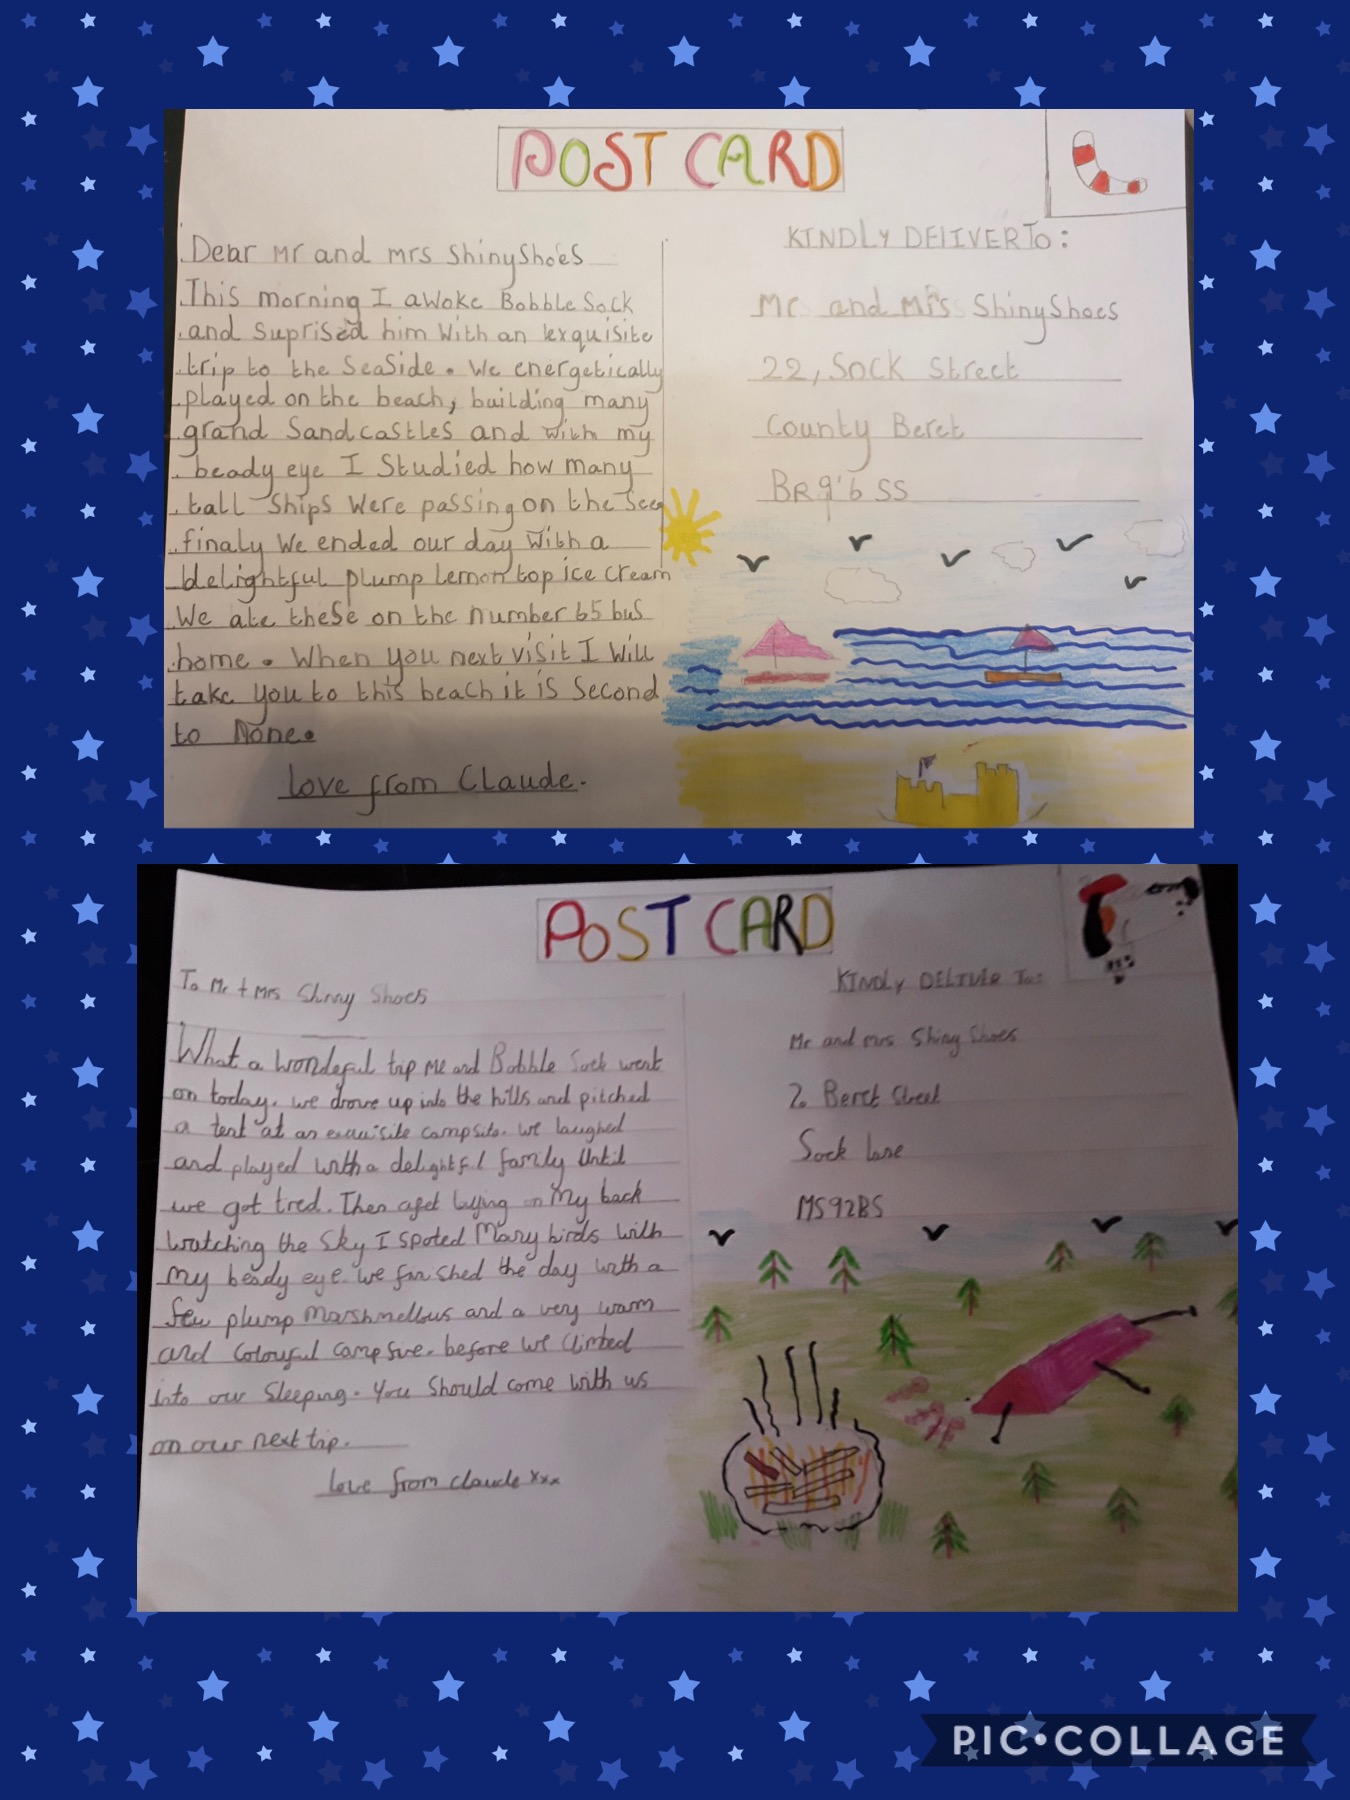 POST CARD
KINDLY DELIVER To :
Dear Mr and mrs ShinyShoes
This morning I awoke Bobble Sock
and Suprised him With an exquisite
trip to the SeaSide. We energetically
played on the beach, building many
grand Sandcastles and with my
beady eye I Studied how many
tall Ships Were passing on the See
finaly We ended our day With a
delightful plump Lemon top ice cream
We ate these on the number 65 bus
home. When you next visit I Will
take you to this beach it is Second
to None.
Love from Claude.
Mr and Mrs ShinyShoes
22, Sock Street
County Beret
BR9'6 SS
POST CARD
KINDLY DELIVER To:
To Mr + Mrs Shinny Shoes
What a wondeful trip Me and Bobble Sock went
on today. we drove up into the hills and pitched
a tent at an exquisite campsite. we laughed
and played with a delightful family Until
we got tired. Then afet laying on My back
watching the Sky I spoted Many birds with
My beady eye. we finished the day with a
few plump Marshmellous and a very warm
and colouful campfire. before we climbed
into our Sleeping. You Should come with us
on our next trip.
Love from claude xxx
Mr and mrs Shiny Shoes
2. Beret Street
Sock lane
MS92BS
PIC•COLLAGE